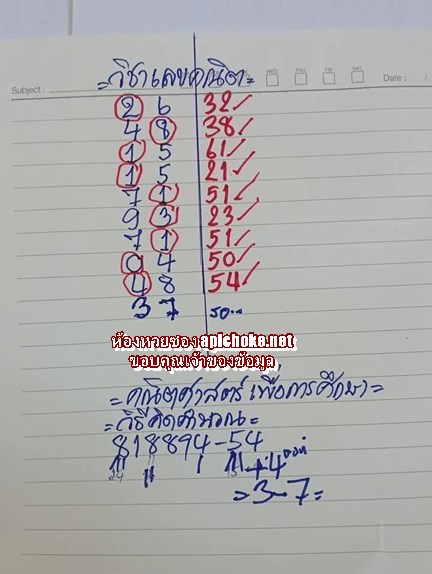 Subject :
=วิชาเลขคณิต=
WED THU FRI SAT
Date : /
2 6 32✓
4 8 38✓
1 5 61✓
1 5 21✓
7 1 51✓
9 3 23✓
7 1 51✓
0 4 50✓
4 8 54✓
3 7 รอ..
ห้องหวยซอง apichoke.net
ขอบคุณเจ้าของข้อมูล
=คณิตศาสตร์ เพื่อการศึกษา=
=วิธีคิดคำนวณ=
818894-54
++4
=3-7=